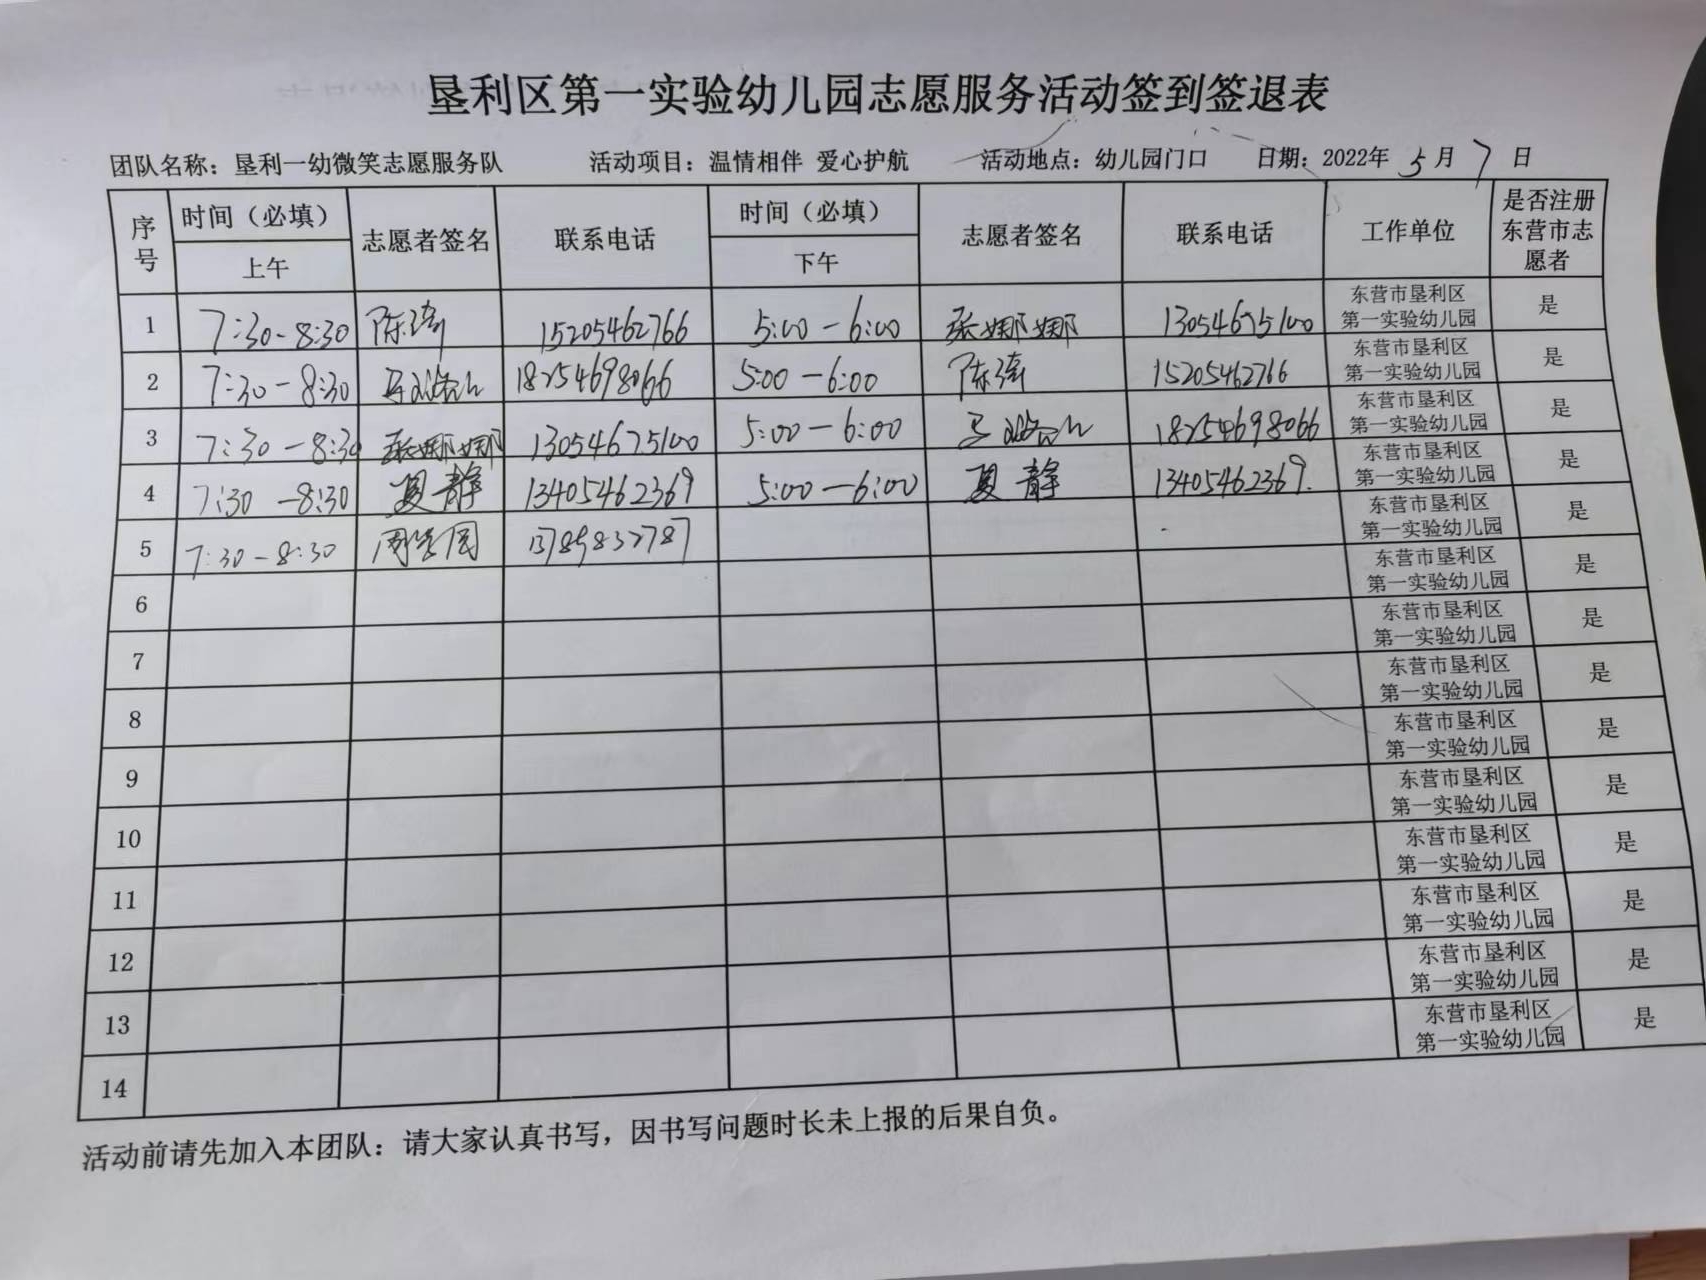 垦利区第一实验幼儿园志愿服务活动签到签退表
团队名称：垦利一幼微笑志愿服务队 活动项目：温情相伴 爱心护航 活动地点：幼儿园门口 日期：2022年 5 月 7 日
序号 时间（必填） 志愿者签名 联系电话 时间（必填） 志愿者签名 联系电话 工作单位 是否注册东营市志愿者
上午 下午
1 7:30-8:30 陈 15205462766 5:00-6:00 张娜娜 13054675100 东营市垦利区第一实验幼儿园 是
2 7:30-8:30 18254698066 5:00-6:00 陈 15205462766 东营市垦利区第一实验幼儿园 是
3 7:30-8:30 张娜娜 13054675100 5:00-6:00 18254698066 东营市垦利区第一实验幼儿园 是
4 7:30-8:30 夏静 13405462369 5:00-6:00 夏静 13405462369. 东营市垦利区第一实验幼儿园 是
5 7:30-8:30 周 13789832787 东营市垦利区第一实验幼儿园 是
6 东营市垦利区第一实验幼儿园 是
7 东营市垦利区第一实验幼儿园 是
8 东营市垦利区第一实验幼儿园 是
9 东营市垦利区第一实验幼儿园 是
10 东营市垦利区第一实验幼儿园 是
11 东营市垦利区第一实验幼儿园 是
12 东营市垦利区第一实验幼儿园 是
13 东营市垦利区第一实验幼儿园 是
14 东营市垦利区第一实验幼儿园 是
活动前请先加入本团队：请大家认真书写，因书写问题时长未上报的后果自负。